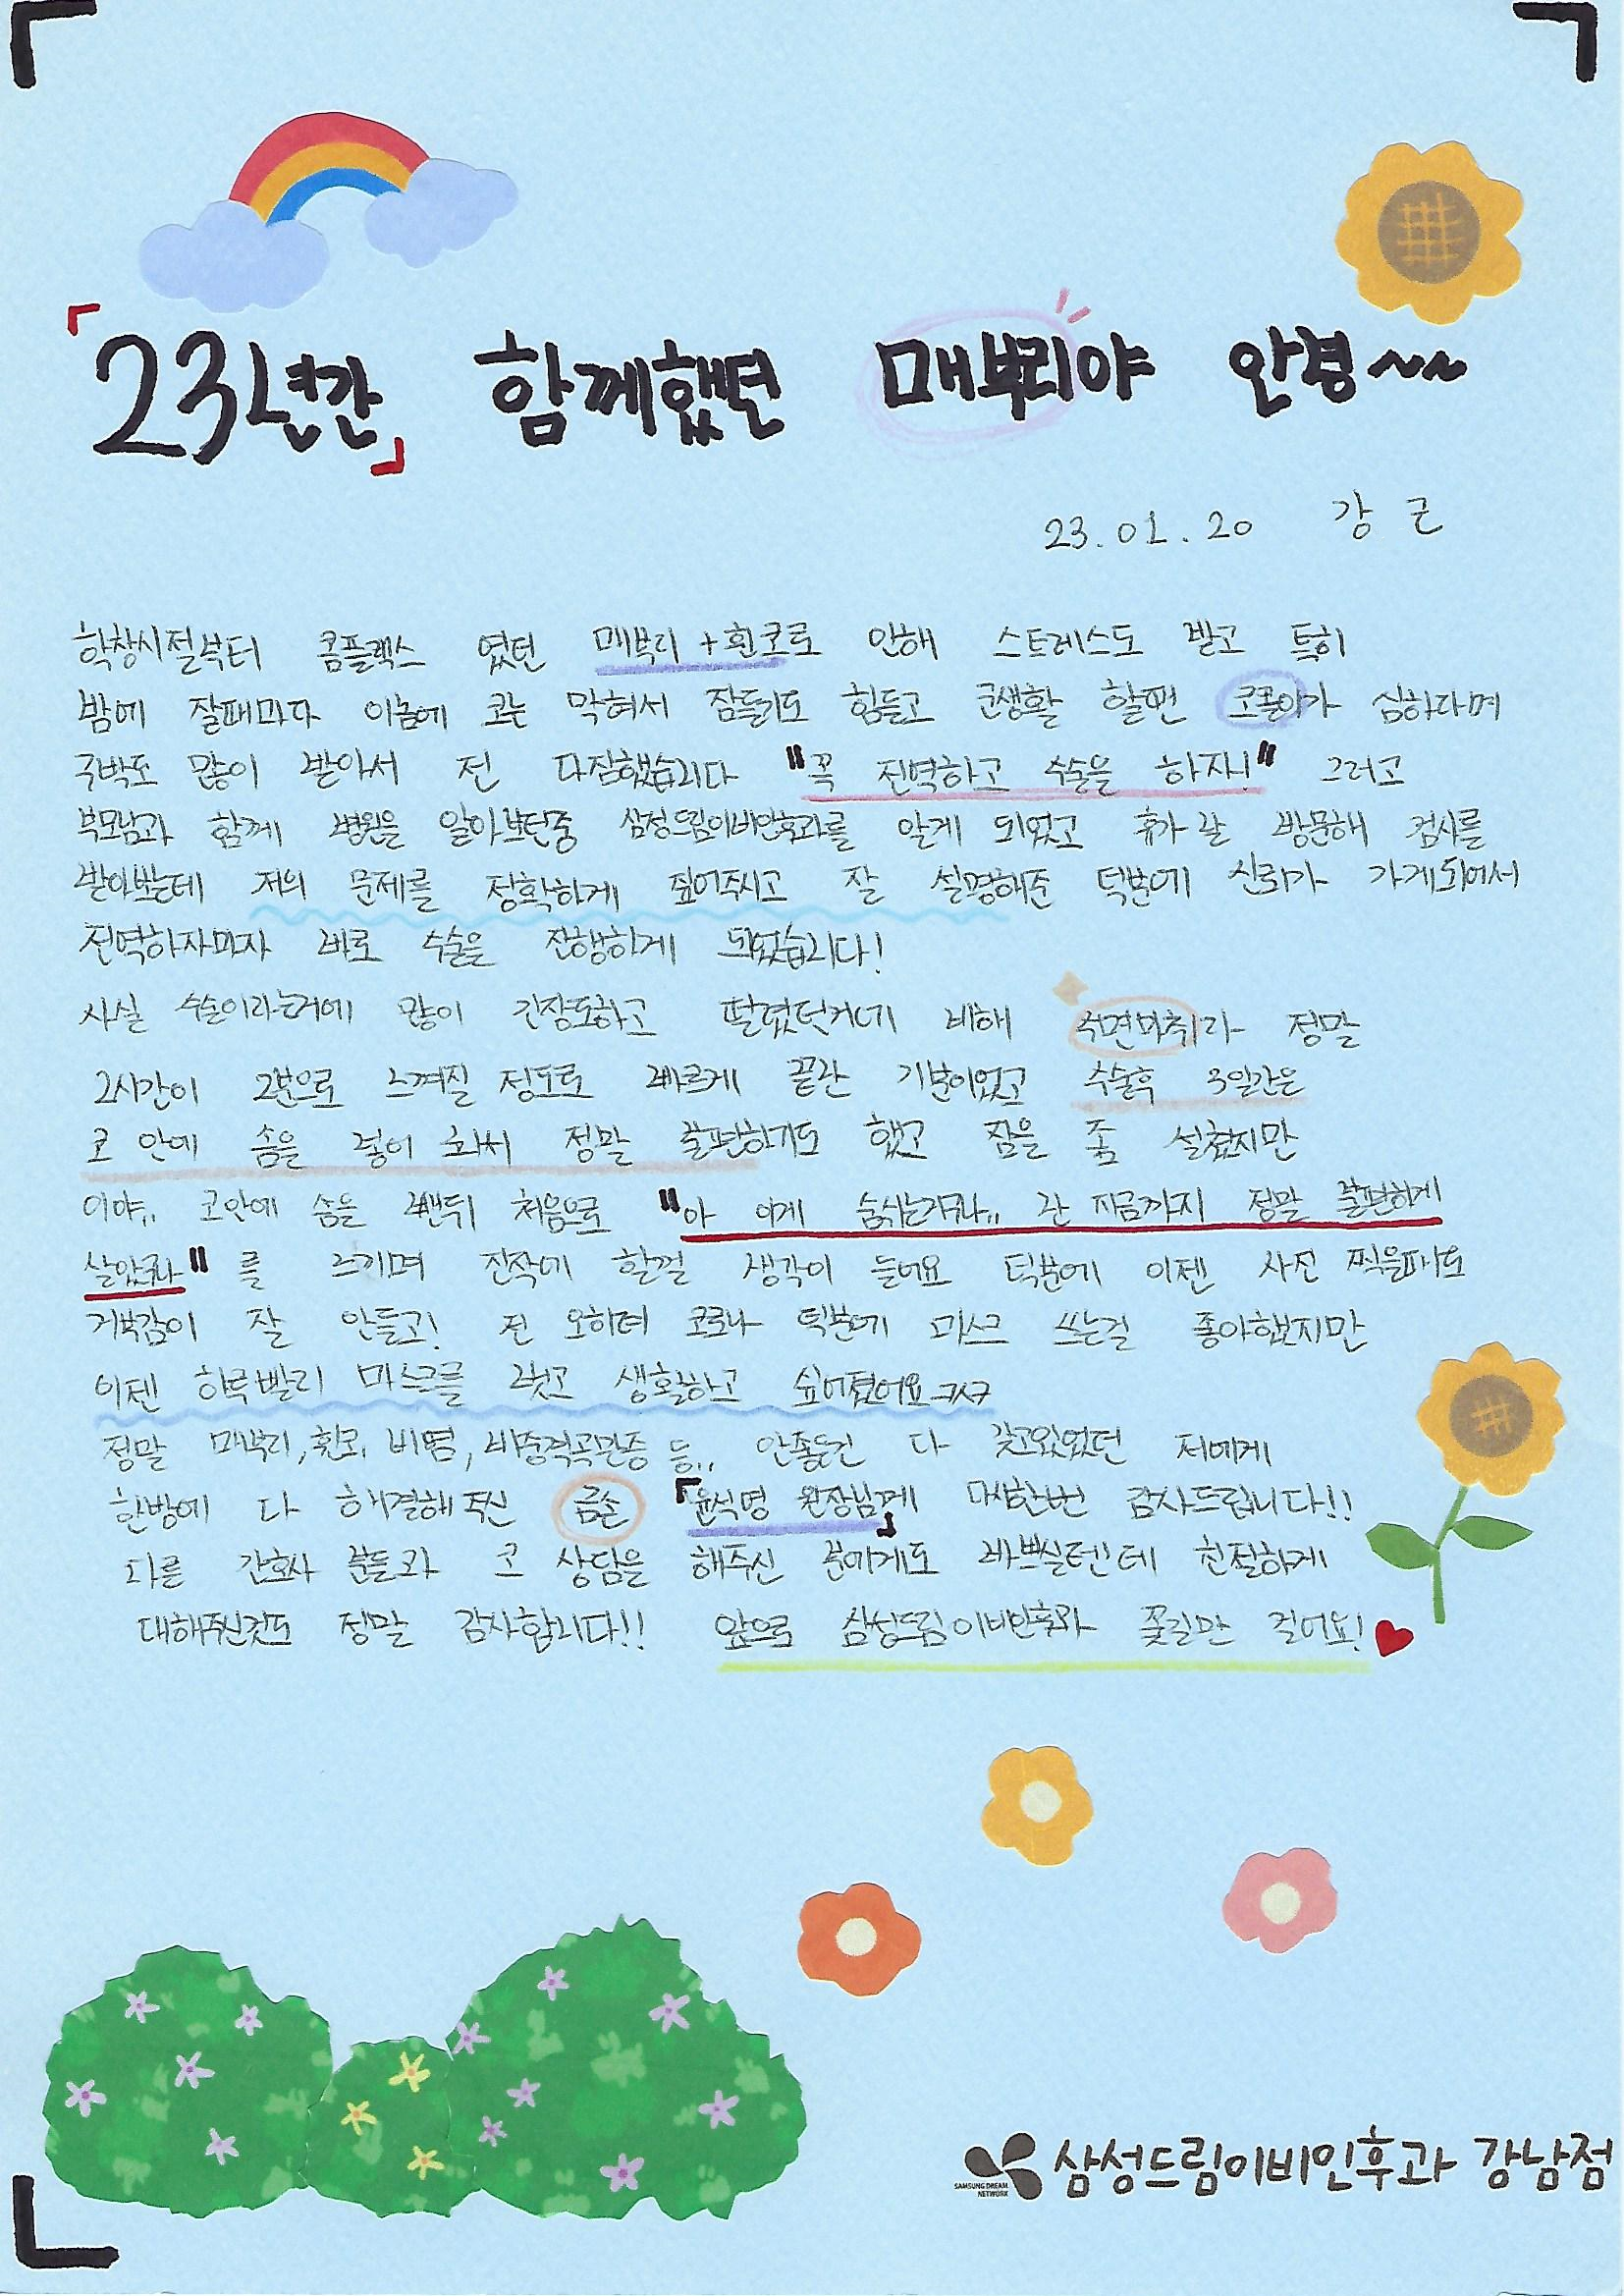 「23년간」 함께했던 매부리야 안경~~
23.01.20 강 근
학창시절부터 콤플렉스 였던 매부리+휜코로 인해 스트레스도 받고 특히
밤에 잘때마다 이놈에 코는 막혀서 잠들기도 힘들고 군생활 할땐 코골이가 심하다며
구박도 많이 받아서 전 다짐했습니다 "꼭 전역하고 수술을 하자!" 그러고
부모님과 함께 병원을 알아보던중 삼성드림이비인후과를 알게 되었고 휴가 날 방문해 검사를
받아봤는데 저의 문제를 정확하게 짚어주시고 잘 설명해준 덕분에 신뢰가 가게되어서
전역하자마자 바로 수술을 진행하게 되었습니다!
사실 수술이라는거에 많이 긴장도하고 떨렸던거에 비해 수면마취라 정말
2시간이 2분으로 느껴질 정도로 빠르게 끝난 기분이었고 수술후 3일간은
코 안에 솜을 넣어 놔서 정말 불편하기도 했고 잠을 좀 설쳤지만
이야.. 코안에 솜을 뺀뒤 처음으로 "아 이게 숨쉬는거구나.. 난 지금까지 정말 불편하게
살았구나" 를 느끼며 진작에 할껄 생각이 들어요 덕분에 이젠 사진 찍을때도
거북감이 잘 안들고! 전 오히려 코로나 덕분에 마스크 쓰는걸 좋아했지만
이젠 하루빨리 마스크를 벗고 생활하고 싶어졌어요ㅋㅋㅋ
정말 매부리, 휜코, 비염, 비중격만곡증 등.. 안좋은건 다 갖고있었던 저에게
한방에 다 해결해주신 금손 「윤석명 원장님께」 다시한번 감사드립니다!!
다른 간호사 분들과 코 상담을 해주신 분에게도 바쁘실텐데 친절하게
대해주신것도 정말 감사합니다!! 앞으로 삼성드림이비인후과 꽃길만 걸어요!♥
SAMSUNG DREAM NETWORK 삼성드림이비인후과 강남점